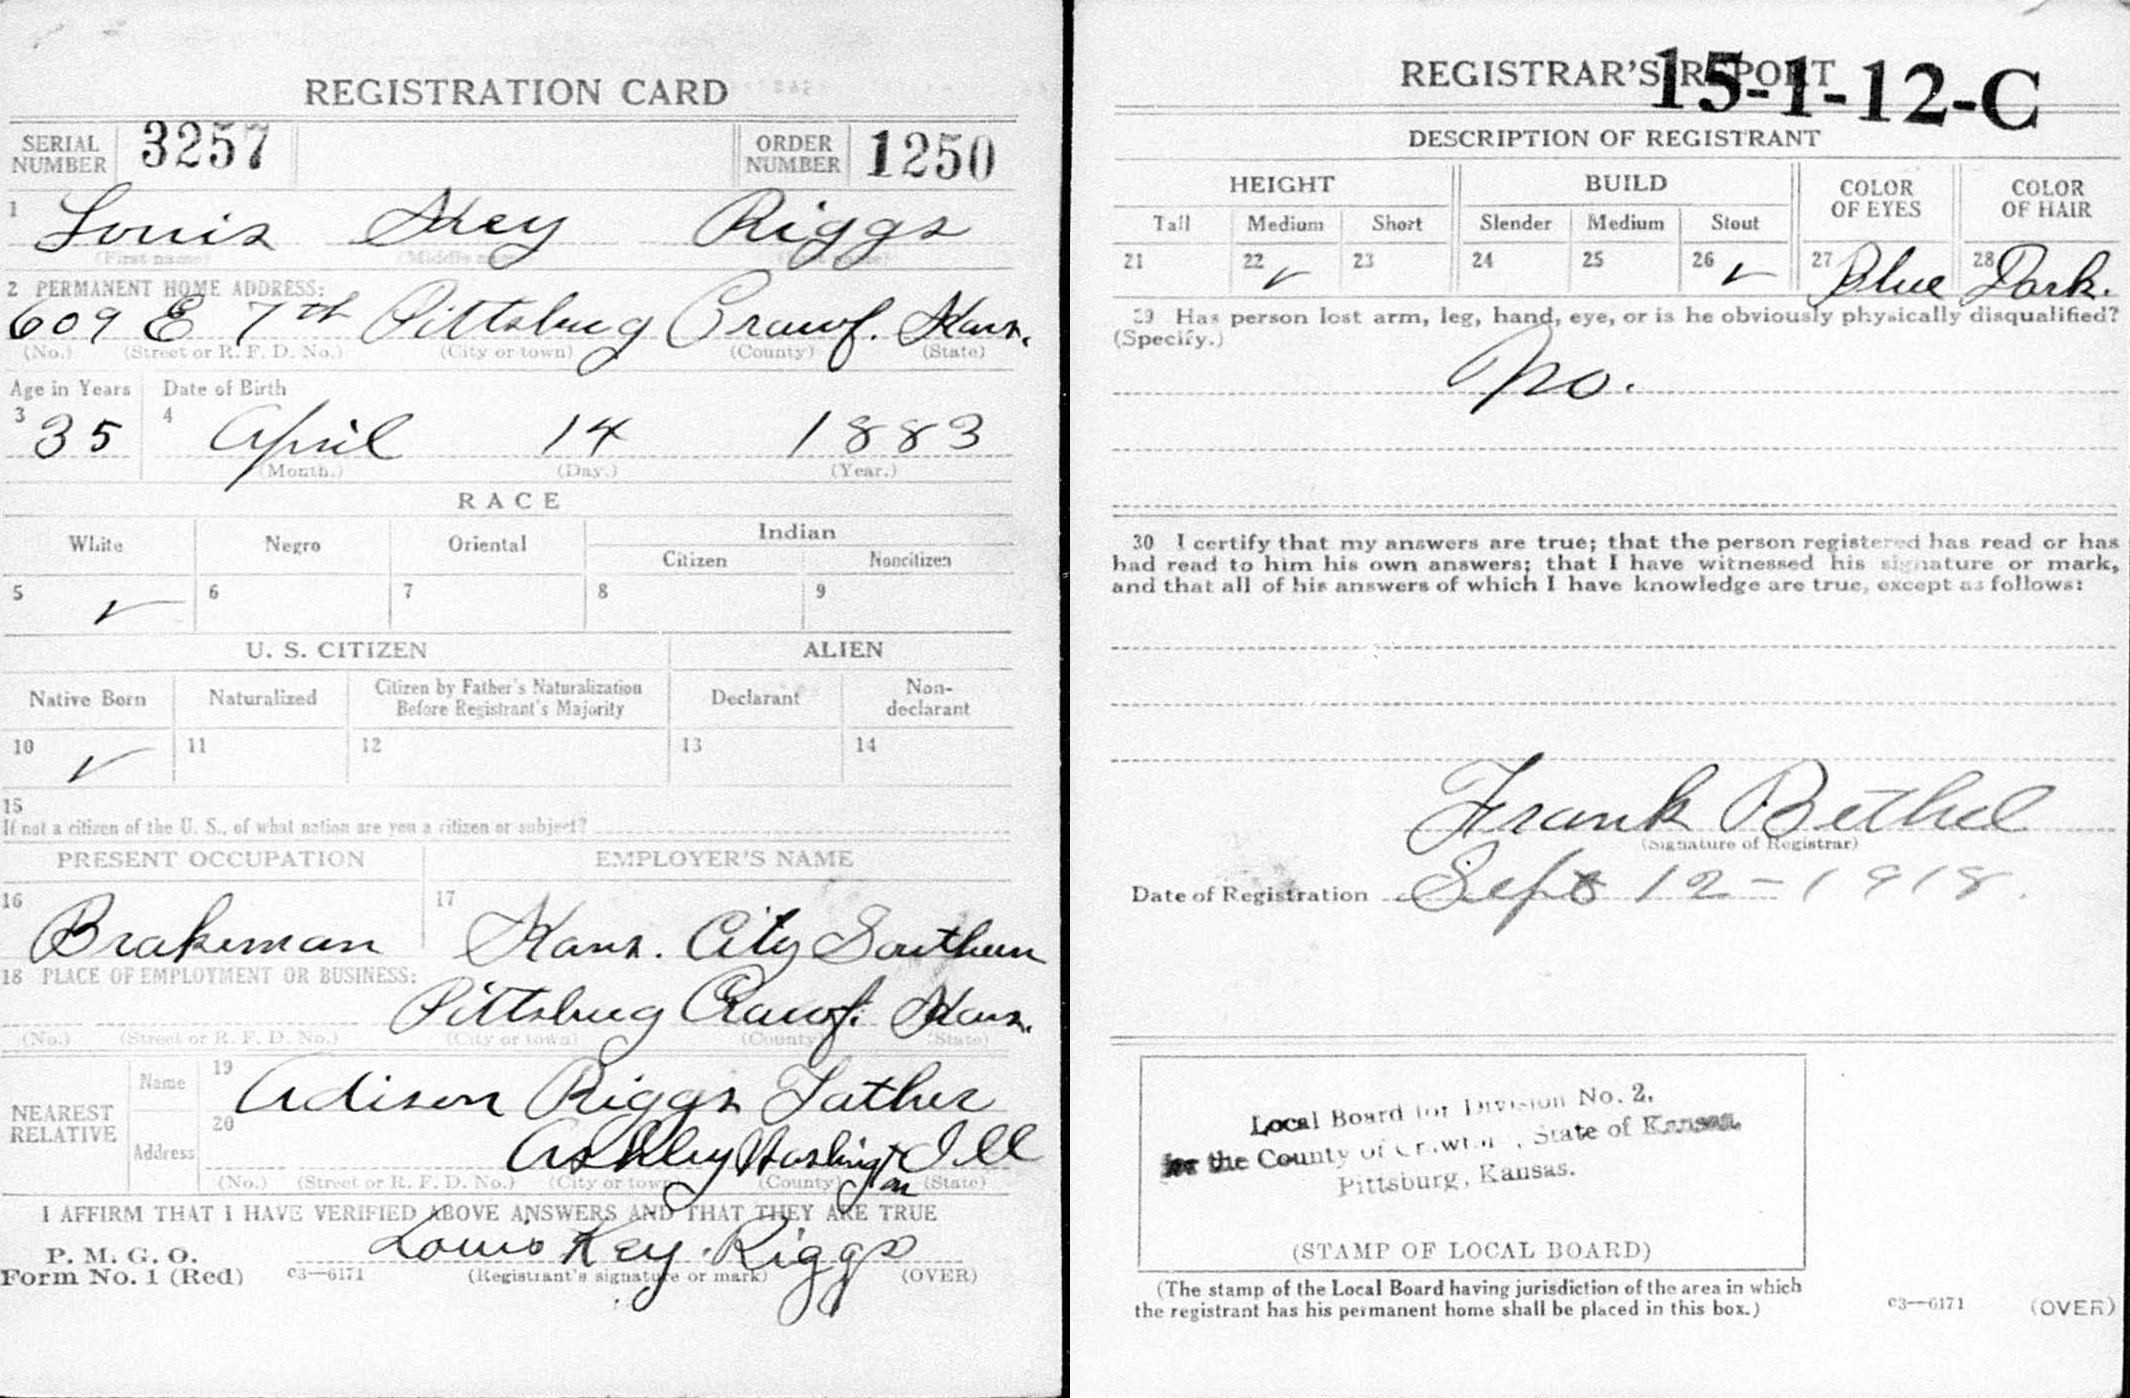 REGISTRATION CARD
SERIAL NUMBER 3257 ORDER NUMBER 1250
1 Louis Key Riggs
(First name) (Middle name) (Last name)
2 PERMANENT HOME ADDRESS:
609 E 7th Pittsburg Crawf. Kans.
(No.) (Street or R. F. D. No.) (City or town) (County) (State)
Age in Years Date of Birth
3 35 4 April 14 1883
(Month.) (Day.) (Year.)
RACE
White Negro Oriental Indian
Citizen Noncitizen
5 ✓ 6 7 8 9
U. S. CITIZEN ALIEN
Native Born Naturalized Citizen by Father's Naturalization Before Registrant's Majority Declarant Non-declarant
10 ✓ 11 12 13 14
15
If not a citizen of the U. S., of what nation are you a citizen or subject?
PRESENT OCCUPATION EMPLOYER'S NAME
16 Brakeman 17 Kans. City Southern
18 PLACE OF EMPLOYMENT OR BUSINESS:
Pittsburg Crawf. Kans.
(No.) (Street or R. F. D. No.) (City or town) (County) (State)
NEAREST RELATIVE
Name 19 Adison Riggs Father
Address 20 Ashley Washington Ill
(No.) (Street or R. F. D. No.) (City or town) (County) (State)
I AFFIRM THAT I HAVE VERIFIED ABOVE ANSWERS AND THAT THEY ARE TRUE
P. M. G. O.
Form No. 1 (Red) c3—6171 Louis Key Riggs
(Registrant's signature or mark) (OVER)
REGISTRAR'S REPORT
15-1-12-C
DESCRIPTION OF REGISTRANT
HEIGHT BUILD COLOR OF EYES COLOR OF HAIR
Tall Medium Short Slender Medium Stout
21 22 ✓ 23 24 25 26 ✓ 27 Blue 28 Dark.
29 Has person lost arm, leg, hand, eye, or is he obviously physically disqualified?
(Specify.)
No.
30 I certify that my answers are true; that the person registered has read or has
had read to him his own answers; that I have witnessed his signature or mark,
and that all of his answers of which I have knowledge are true, except as follows:
Frank Bethel
(Signature of Registrar)
Date of Registration Sept 12-1918.
Local Board for Division No. 2,
for the County of Crawford, State of Kansas,
Pittsburg, Kansas.
(STAMP OF LOCAL BOARD)
(The stamp of the Local Board having jurisdiction of the area in which
the registrant has his permanent home shall be placed in this box.)
c3—6171 (OVER)